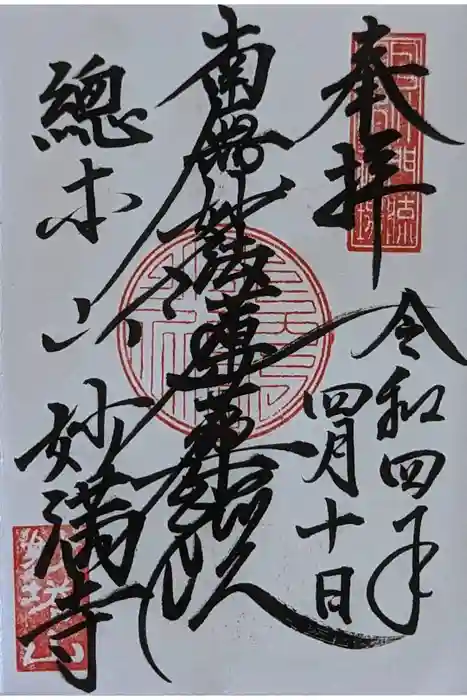 奉拝
令和四年
四月十日
南無妙法蓮華経
總本山 妙満寺